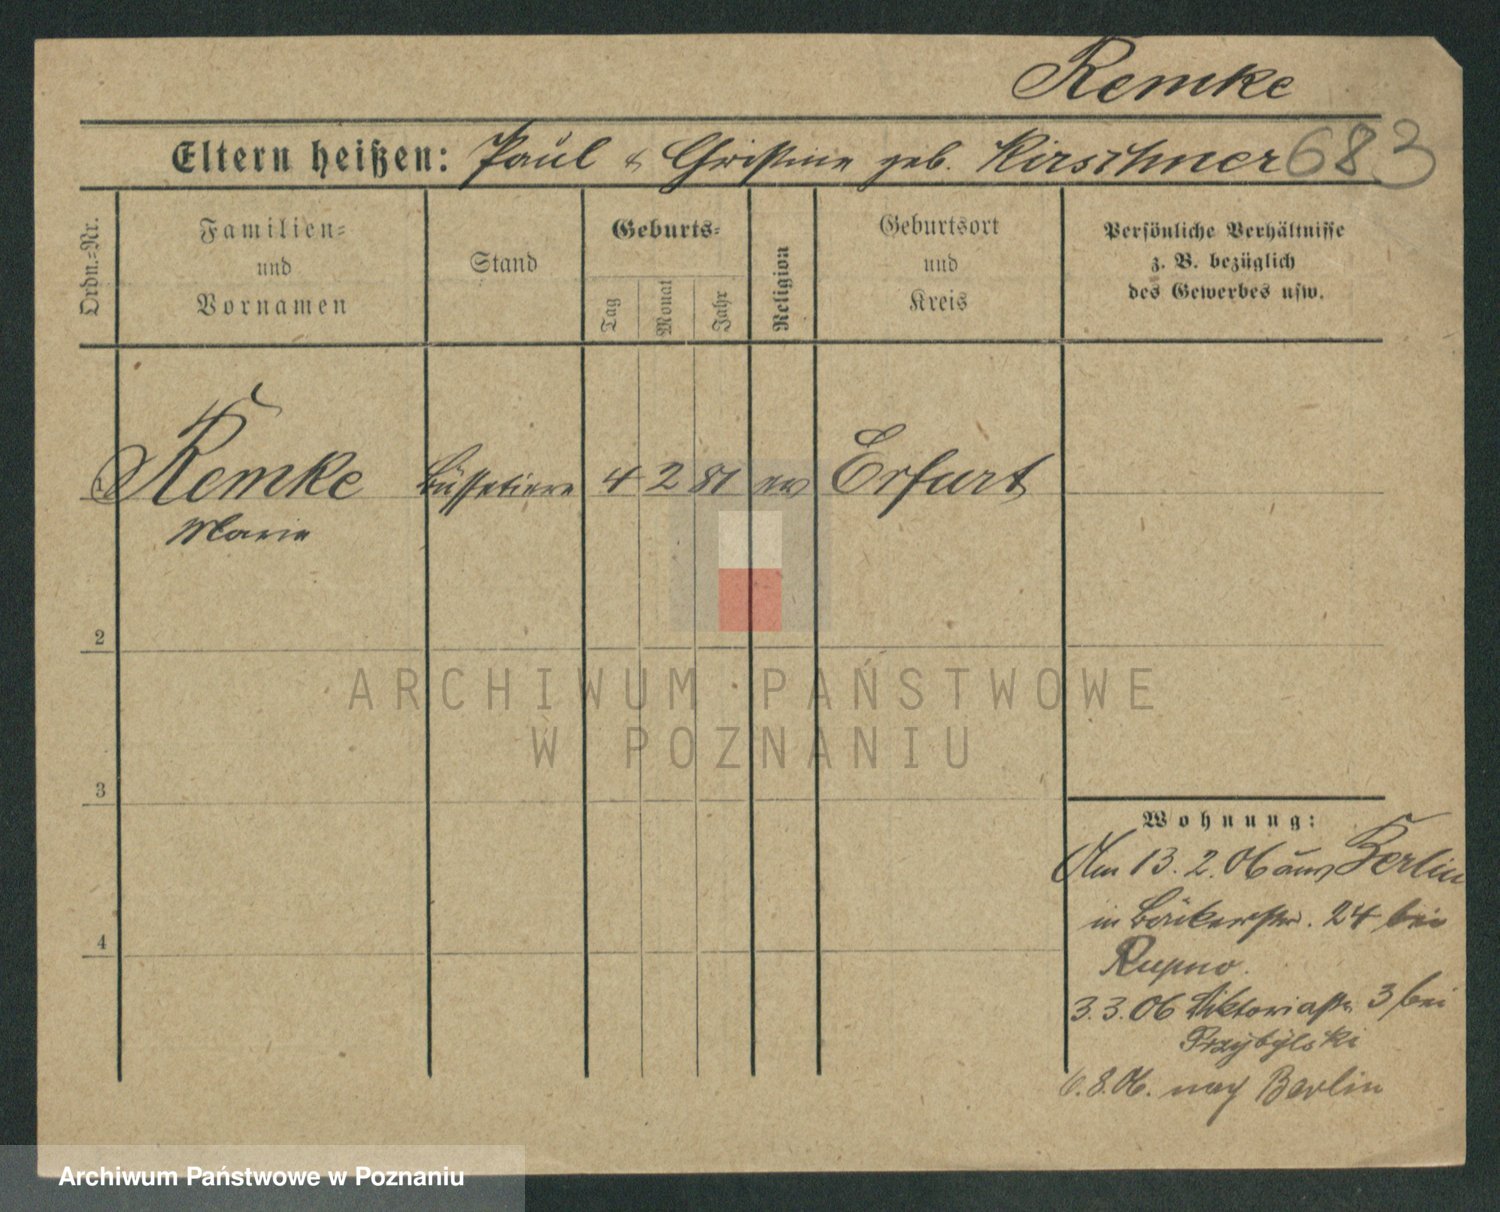 Remke
Eltern heißen: Paul & Christine geb. Kirschner 683
Ordn.-Nr.
Familien- und Vornamen
Stand
Geburts-
Tag
Monat
Jahr
Religion
Geburtsort und Kreis
Persönliche Verhältnisse
z. B. bezüglich
des Gewerbes usw.
1 Remke Büffetiere 4 2 81 ev Erfurt
Marie
2
3
4
Wohnung:
Am 13. 2. 06 aus Berlin
in Bäckerstr. 24 bei
3. 3. 06 Viktoriastr. 3 bei
Przybylski
6. 8. 06. nach Berlin
ARCHIWUM PAŃSTWOWE
W POZNANIU
Archiwum Państwowe w Poznaniu